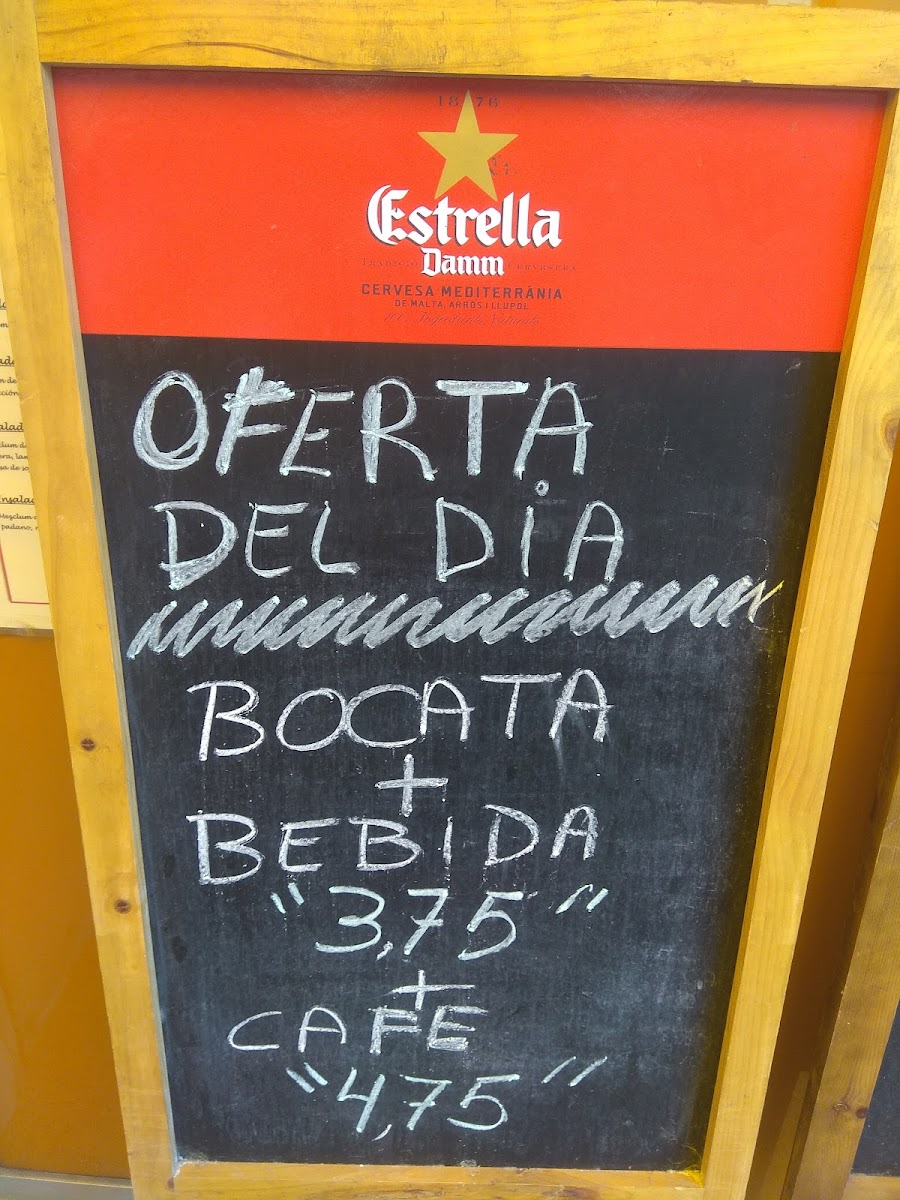 1876
Estrella
Damm
TRADICIÓ CERVESERA
CERVESA MEDITERRÀNIA
DE MALTA, ARRÒS I LLÚPOL
OFERTA
DEL DIA
BOCATA
+
BEBIDA
"3,75"
+
CAFE
"4,75"